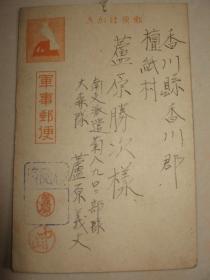 郵便はがき
香川縣香川郡
檀紙村
蘆原勝次様
軍事郵便
南支派遣菊八九〇二部隊
大森隊
蘆原義丈